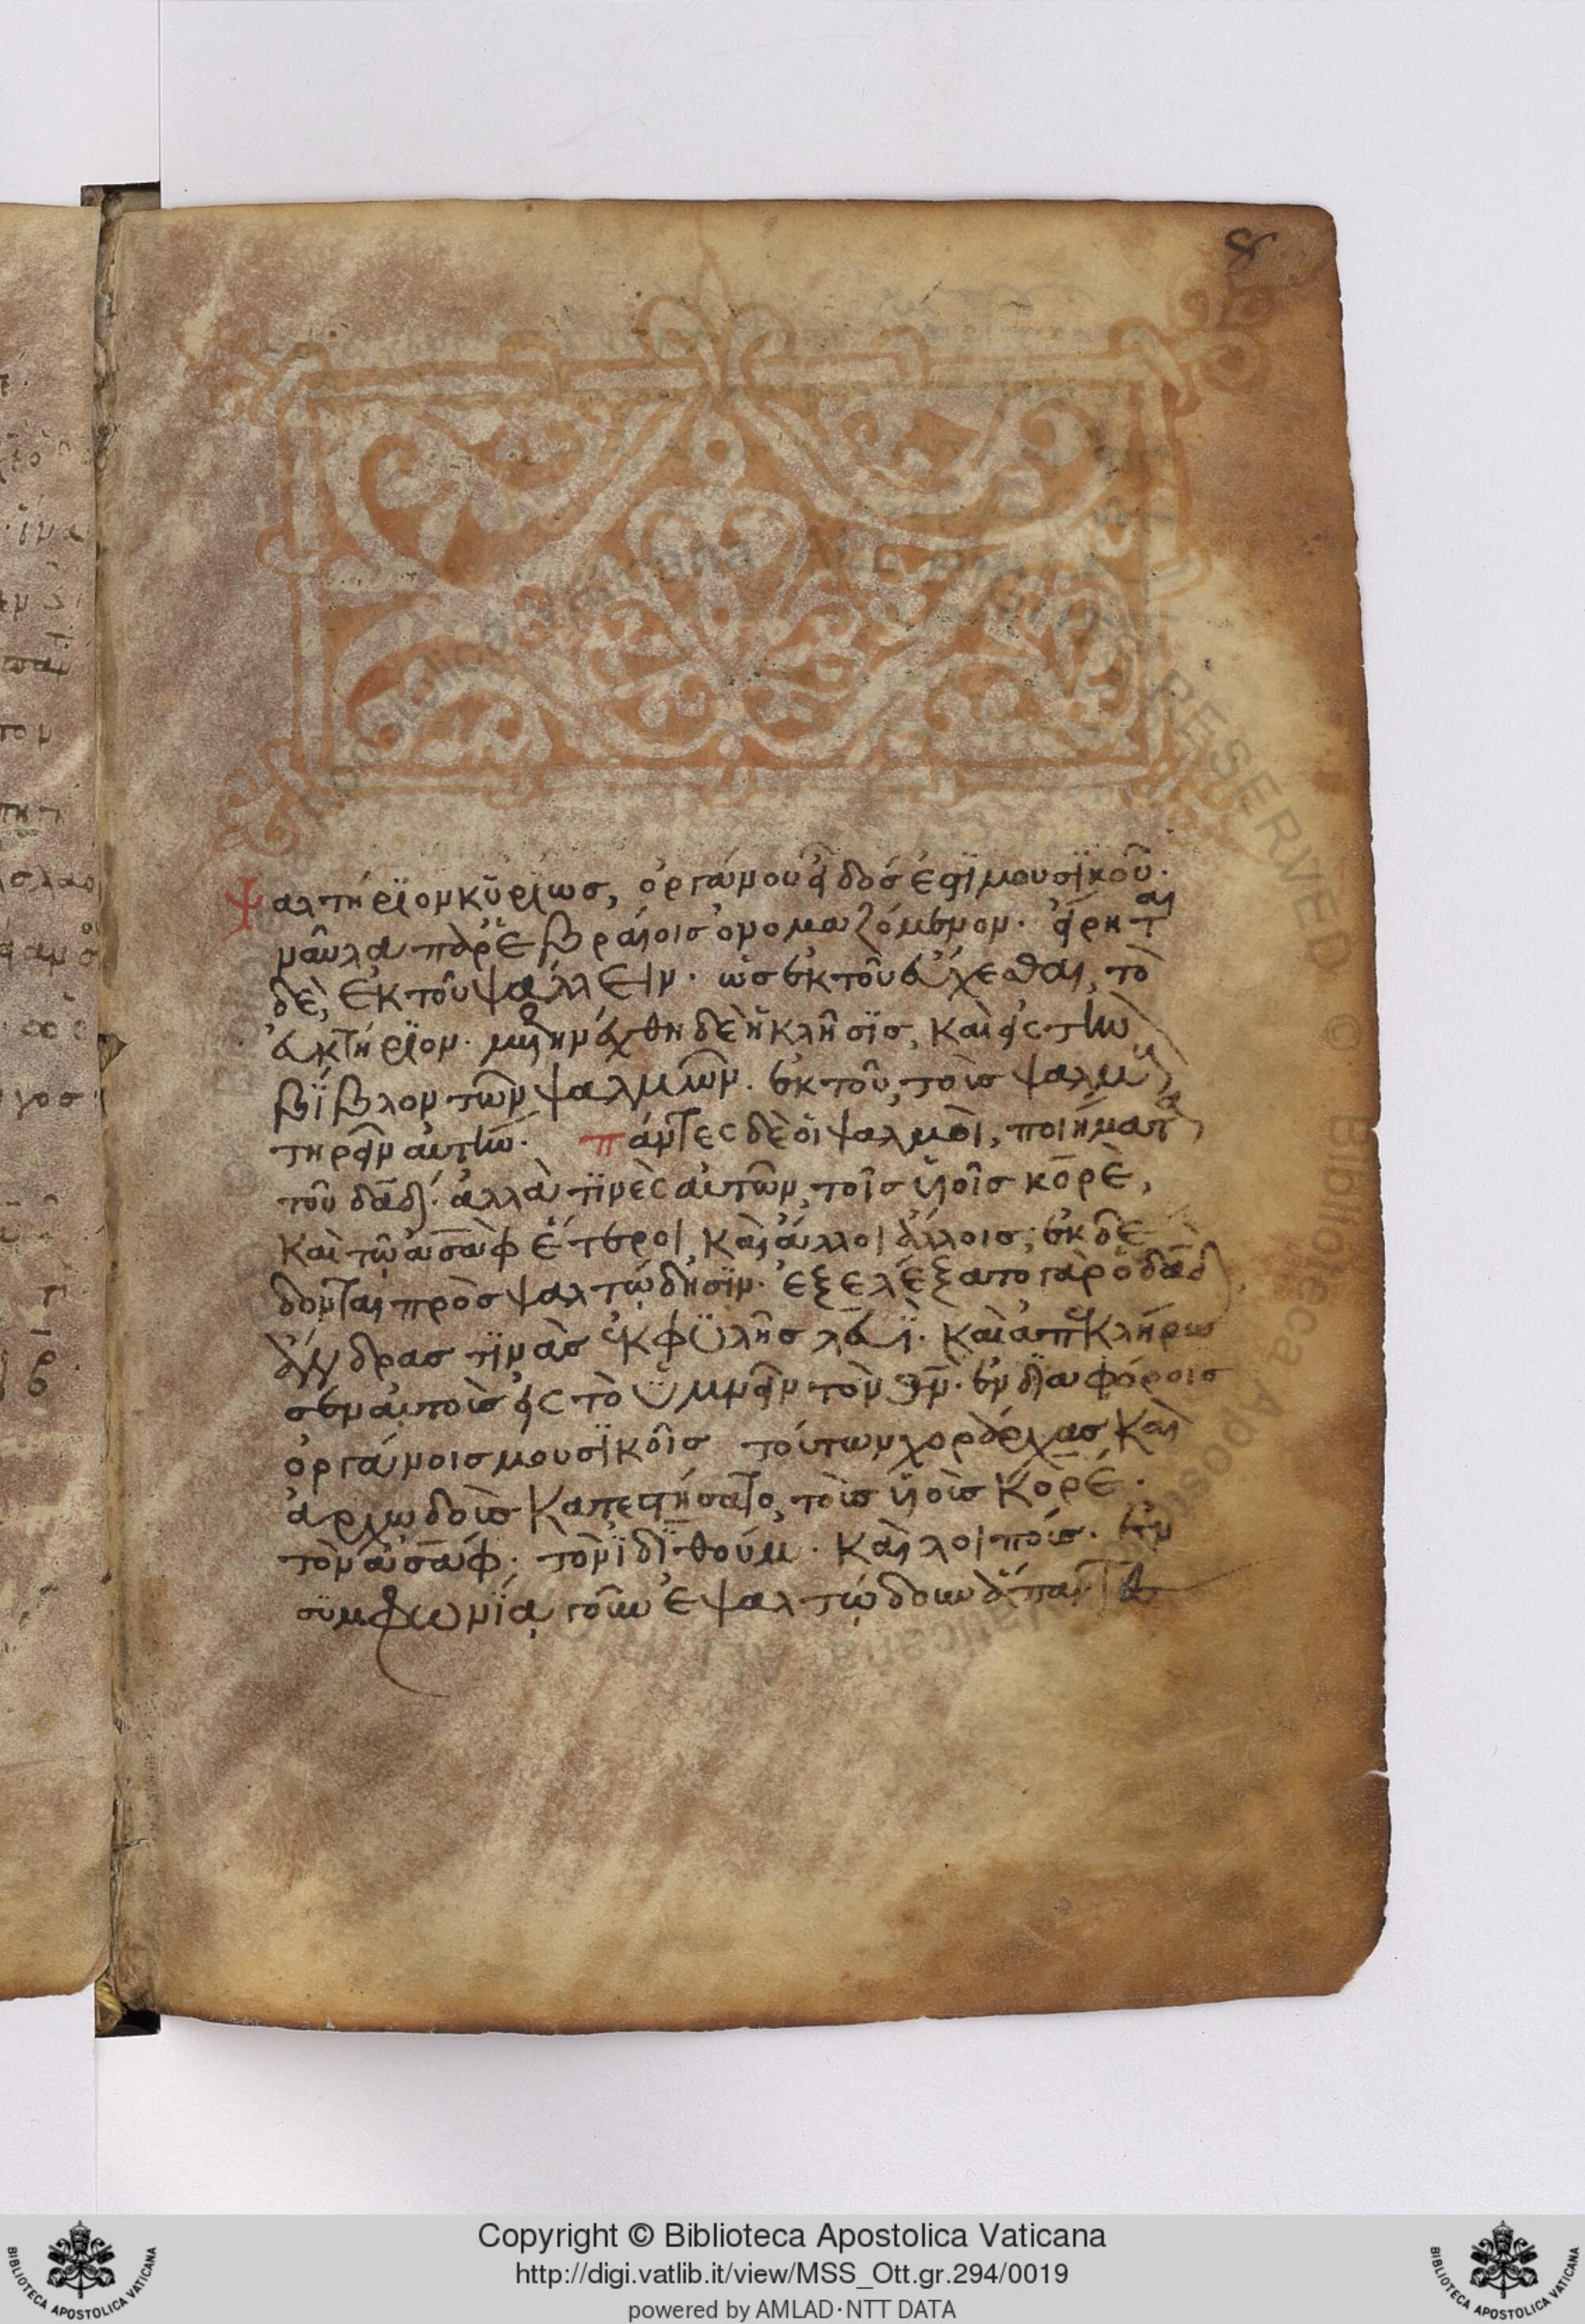 8
Ψαλτήριον κυρίως, ὀργάνου εἶδός ἐστι μουσικοῦ·
ναῦλα παρ' Ἑβραίοις ὀνομαζόμενον· εἴρηται
δὲ, ἐκ τοῦ ψάλλειν· ὡς ἐκ τοῦ ἄγεσθαι, τὸ
ἀκτήριον· μετηνέχθη δὲ ἡ κλῆσις, καὶ εἰς τὴν
βίβλον τῶν ψαλμῶν· ἐκ τοῦ, τοῖς ψαλμοῖς
τηρεῖν αὐτήν· πάντες δὲ οἱ ψαλμοὶ, ποιήματα
τοῦ δαδ· ἀλλὰ τινὲς αὐτῶν, τοῖς υἱοῖς κορὲ,
καὶ τῷ ἀσὰφ ἕτεροι, καὶ ἄλλοι ἄλλοις, ἐκδέ
δονται πρὸς ψαλτῴδησιν· ἐξελέξατο γὰρ ὁ δαδ
ἄνδρας τινὰς ἐκ φυλῆς λευί· καὶ ἀπεκλήρω
σεν αὐτοῖς εἰς τὸ ὑμνεῖν τὸν θν· ἐν διαφόροις
ὀργάνοις μουσικοῖς τούτων χορδάρχας καὶ
ἀρχωδοὺς κατεστήσατο, τοὺς υἱοὺς κορέ·
τὸν ἀσάφ· τὸν ἰδιθούμ· καὶ λοιπούς· ἐν
συμφωνίᾳ γοῦν ἐψαλτῴδουν ἅπαντα
Copyright © Biblioteca Apostolica Vaticana
http://digi.vatlib.it/view/MSS_Ott.gr.294/0019
powered by AMLAD·NTT DATA
BIBLIOTECA APOSTOLICA VATICANA
BIBLIOTECA APOSTOLICA VATICANA